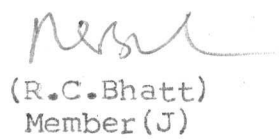 (R.C.Bhatt)
Member(J)